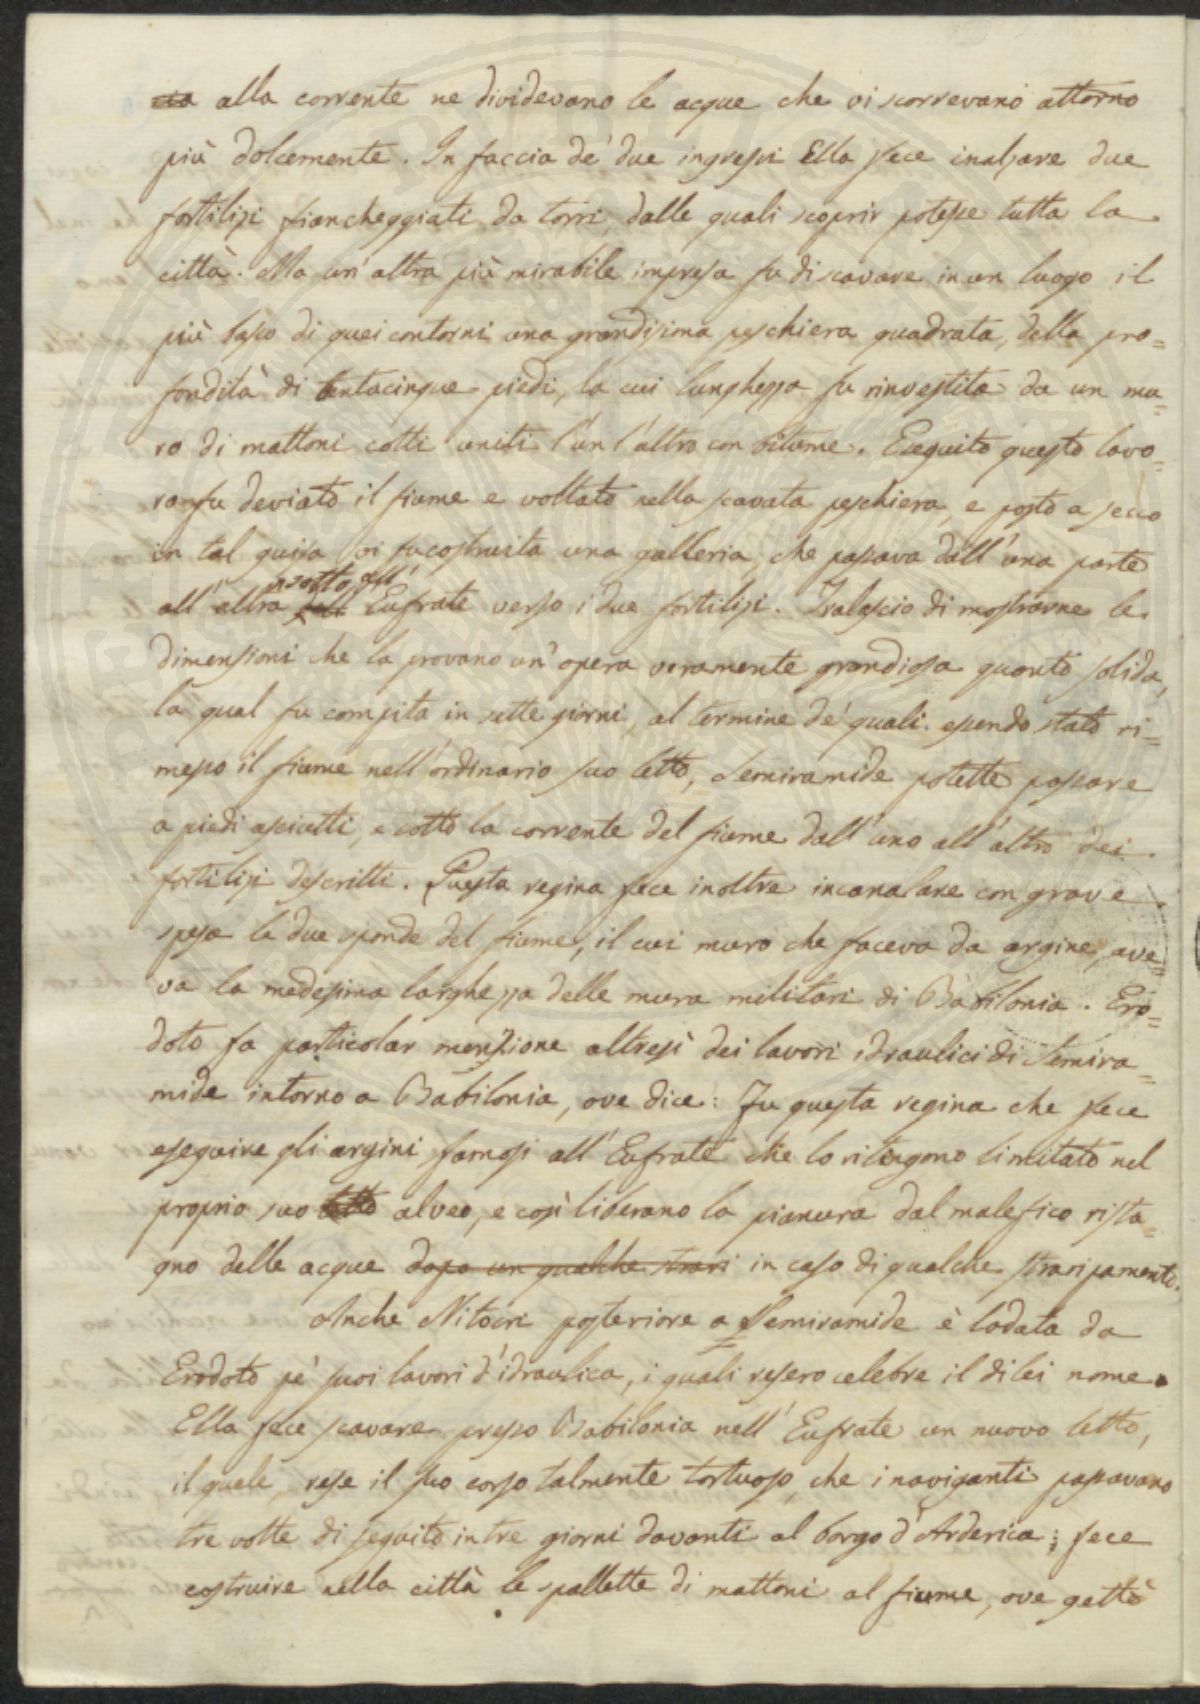 alla corrente ne dividevano le acque che vi scorrevano attorno
più dolcemente. In faccia de' due ingressi Ella fece inalzare due
fortilizi fiancheggiati da torri, dalle quali scoprir potesse tutta la
città. Ma un'altra più mirabile impresa fu di scavare in un luogo il
più basso di quei contorni una grandissima peschiera quadrata, della pro=
fondità di trentacinque piedi, la cui lunghezza fu rinvestita da un mu=
ro di mattoni cotti uniti l'un l'altro con bitume. Eseguito questo lavo=
ro fu deviato il fiume e voltato nella scavata peschiera, e posto a secco
in tal guisa vi fu costruita una galleria, che passava dall'una parte
all'altra sotto all' Eufrate verso i due fortilizi. Tralascio di mostrarne le
dimensioni che la provano un'opera veramente grandiosa quanto solida,
la qual fu compita in sette giorni, al termine de' quali essendo stato ri=
messo il fiume nell'ordinario suo letto, Semiramide potette passare
a piedi asciutti, e sotto la corrente del fiume dall'uno all'altro dei
fortilizi descritti. Questa regina fece inoltre incanalare con grave
spesa le due sponde del fiume, il cui muro che faceva da argine, ave=
va la medesima larghezza delle mura militari di Babilonia. Ero=
doto fa particolar menzione altresì dei lavori idraulici di Semira=
mide intorno a Babilonia, ove dice: Fu questa regina che fece
eseguire gli argini famosi all'Eufrate che lo ritengono limitato nel
proprio suo letto alveo, e così liberano la pianura dal malefico rista=
gno delle acque dopo un qualche strari in caso di qualche straripamento.
Anche Nitocri posteriore a Semiramide è lodata da
Erodoto pe' suoi lavori d'idraulica, i quali resero celebre il di lei nome.
Ella fece scavare presso Babilonia nell'Eufrate un nuovo letto,
il quale, rese il suo corso talmente tortuoso, che i naviganti passavano
tre volte di seguito in tre giorni davanti al borgo d'Arderica; fece
costruire nella città le spallette di mattoni al fiume, ove gettò